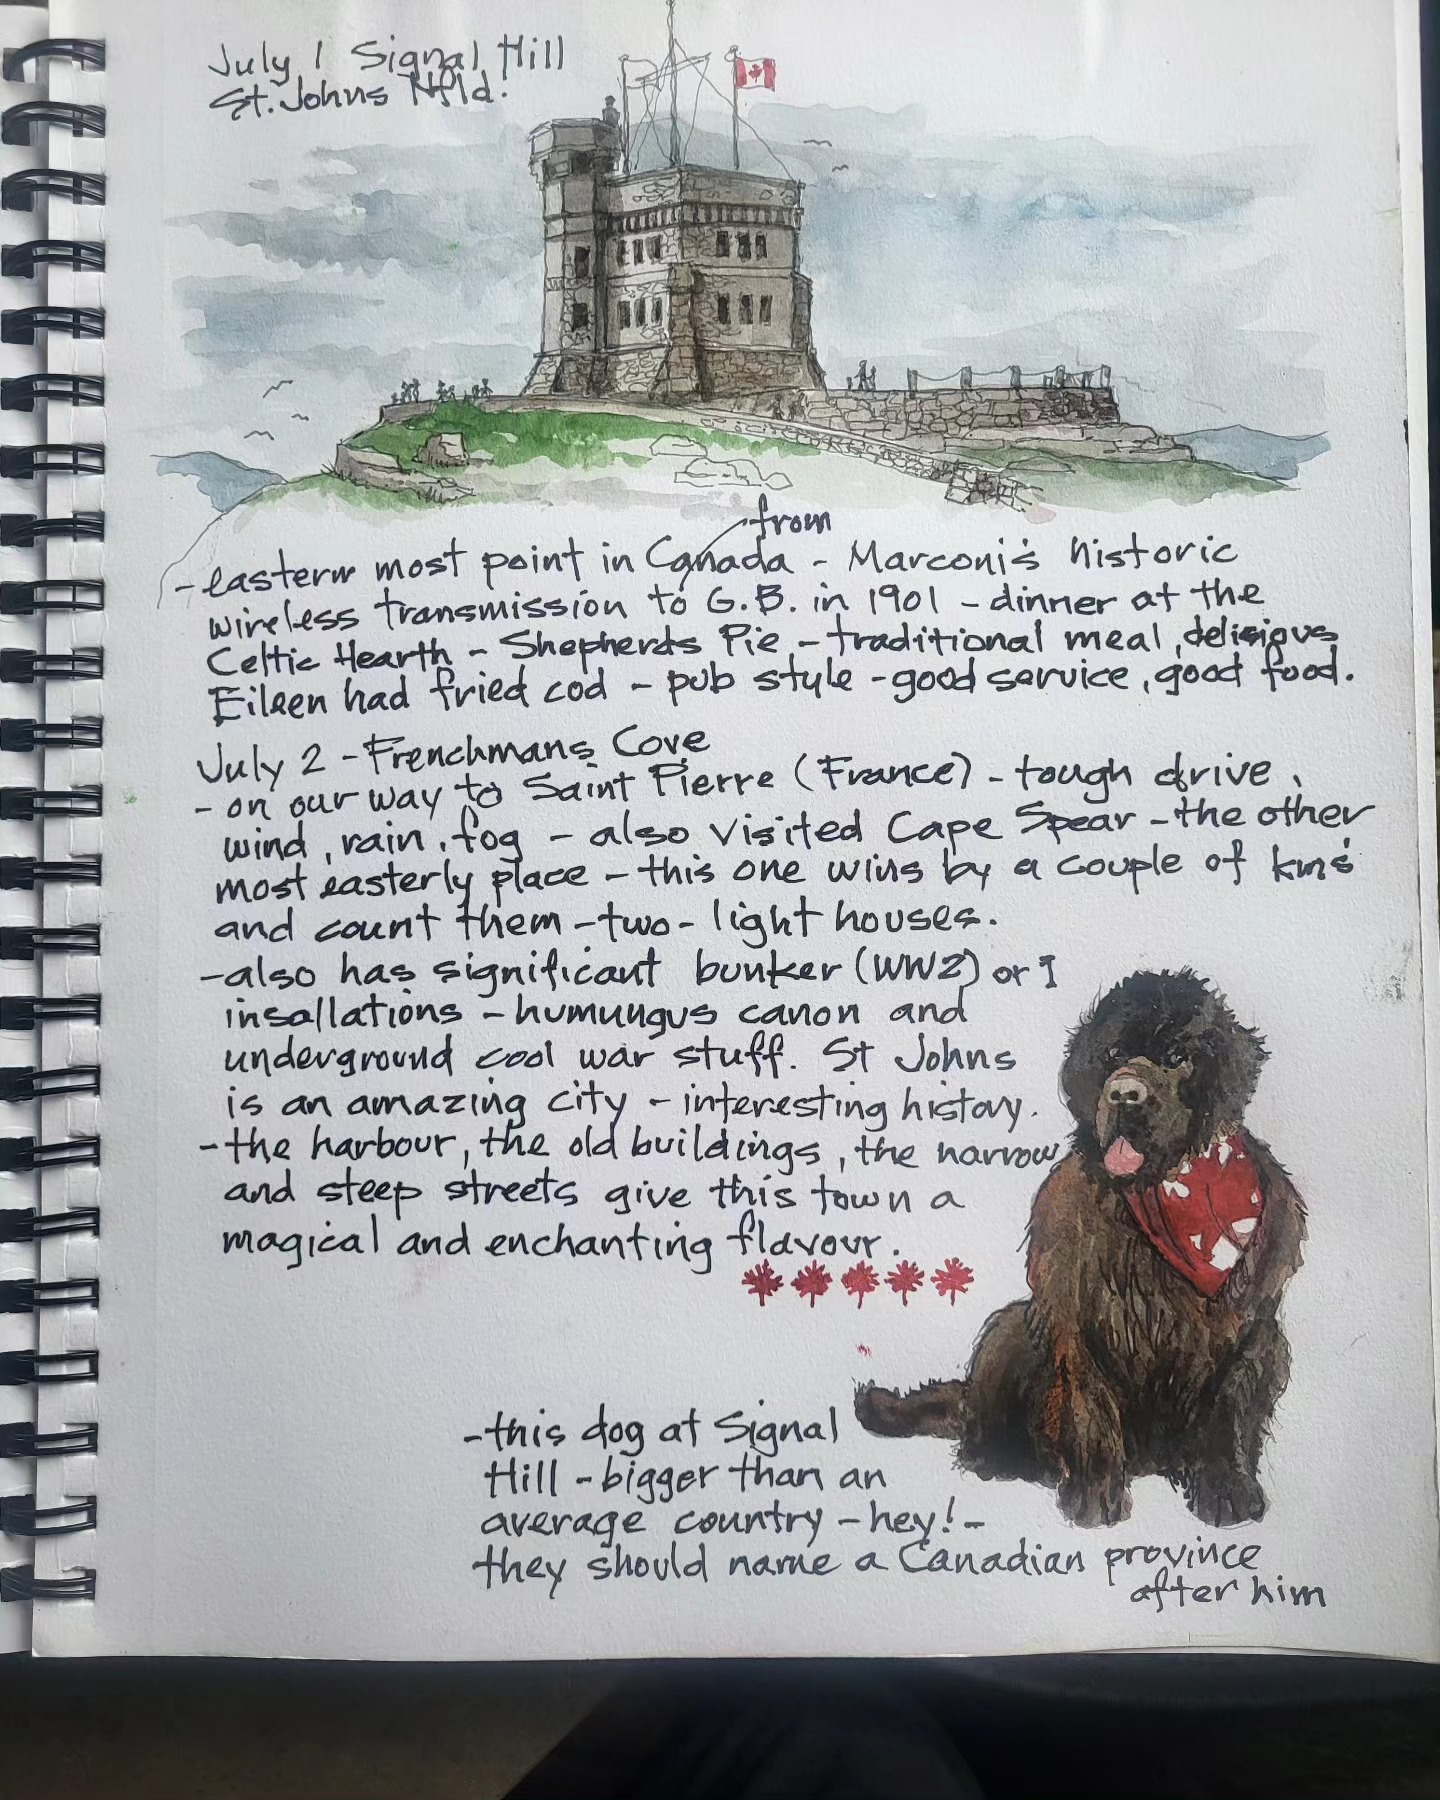 July 1 Signal Hill
St. Johns Nfld.
from
- eastern most point in Canada - Marconi's historic
wireless transmission to G.B. in 1901 - dinner at the
Celtic Hearth - Shepherds Pie - traditional meal, delisious
Eileen had fried cod - pub style - good service, good food.
July 2 - Frenchmans Cove
- on our way to Saint Pierre (France) - tough drive,
wind, rain, fog - also visited Cape Spear - the other
most easterly place - this one wins by a couple of km's
and count them - two - light houses.
- also has significant bunker (WW2) or 1
insallations - humungus canon and
underground cool war stuff. St Johns
is an amazing city - interesting history.
- the harbour, the old buildings, the narrow
and steep streets give this town a
magical and enchanting flavour.
- this dog at Signal
Hill - bigger than an
average country - hey! -
they should name a Canadian province
after him